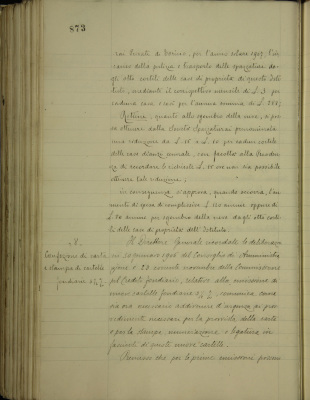 873
rai Riuniti di Torino, per l'anno solare 1907, l'in-
carico della pulizia e trasporto delle spazzature de-
gli otto cortili delle case di proprietà di questo Isti-
tuto, mediante il corrispettivo mensile di L. 3 per
caduna casa e così per l'annua somma di L. 288;
Ritiene, quanto allo sgombro della neve, a po-
ter ottenere dalla Società Spazzaturai
una riduzione da L. 15 a L. 10 per cadun cortile
delle case dianzi accennate, con facoltà alla Presiden-
za di accordare le richieste L. 15 ove non sia possibile
ottenere tale riduzione;
in conseguenza si approva, quando occorra, l'au-
mento di spesa di complessive L. 120 annue oppure di
L. 80 annue per sgombro della neve dagli otto corti-
li delle case di proprietà dell'Istituto.
Confezione di carta
e stampa di cartelle
fondiarie
Il Direttore Generale ricordate le deliberazio-
ni 20 gennaio 1906 del Consiglio di Amministra-
zione e 23 corrente novembre della Commissione
pel Credito fondiario, relative alla emissione di
nuove cartelle fondiarie, comunica come
sia ora necessario addivenire d'urgenza ai prov-
vedimenti necessari per la provvista della carta
e per la stampa, numerazione e legatura in
fascicoli di queste nuove cartelle.
Premesso che per le prime emissioni possono